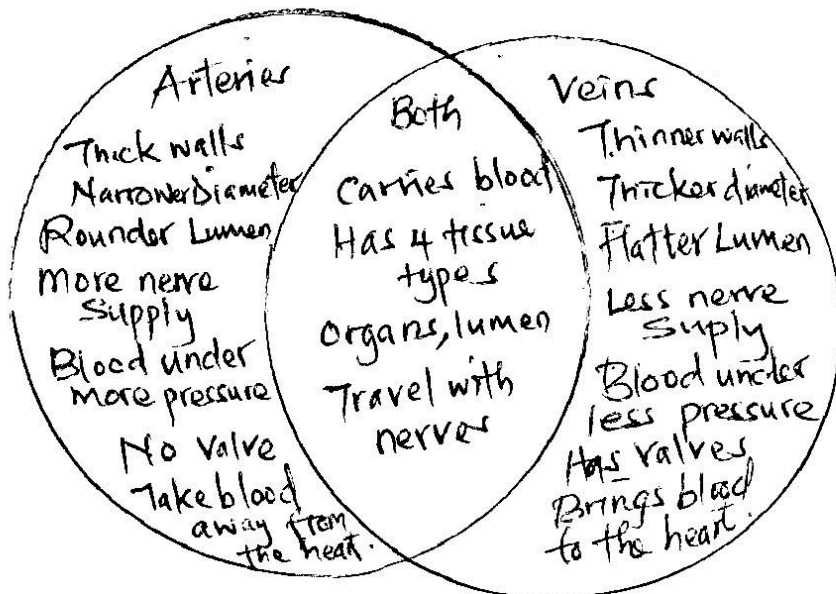 Arteries
Thick walls
Narrower Diameter
Rounder Lumen
More nerve
Supply
Blood under
more pressure
No valve
Take blood
away from
the heart.
Both
Carries blood
Has 4 tissue
types
Organs, lumen
Travel with
nerves
Veins
Thinner walls
Thicker diameter
Flatter Lumen
Less nerve
Suply
Blood under
less pressure
Has valves
Brings blood
to the heart.